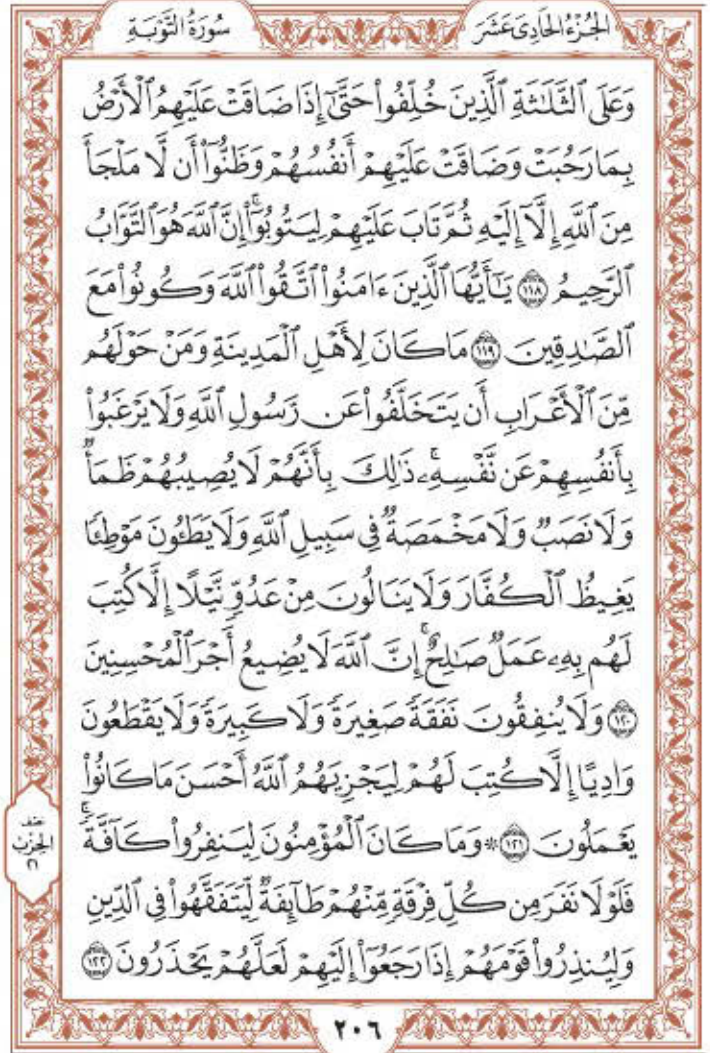 الجُزْءُ الحَادِيَ عَشَرَ
سُورَةُ التَّوْبَةِ
وَعَلَى ٱلثَّلَٰثَةِ ٱلَّذِينَ خُلِّفُوا۟ حَتَّىٰٓ إِذَا ضَاقَتْ عَلَيْهِمُ ٱلْأَرْضُ
بِمَا رَحُبَتْ وَضَاقَتْ عَلَيْهِمْ أَنفُسُهُمْ وَظَنُّوٓا۟ أَن لَّا مَلْجَأَ
مِنَ ٱللَّهِ إِلَّآ إِلَيْهِ ثُمَّ تَابَ عَلَيْهِمْ لِيَتُوبُوٓا۟ۚ إِنَّ ٱللَّهَ هُوَ ٱلتَّوَّابُ
ٱلرَّحِيمُ ١١٨ يَٰٓأَيُّهَا ٱلَّذِينَ ءَامَنُوا۟ ٱتَّقُوا۟ ٱللَّهَ وَكُونُوا۟ مَعَ
ٱلصَّٰدِقِينَ ١١٩ مَا كَانَ لِأَهْلِ ٱلْمَدِينَةِ وَمَنْ حَوْلَهُم
مِّنَ ٱلْأَعْرَابِ أَن يَتَخَلَّفُوا۟ عَن رَّسُولِ ٱللَّهِ وَلَا يَرْغَبُوا۟
بِأَنفُسِهِمْ عَن نَّفْسِهِۦۚ ذَٰلِكَ بِأَنَّهُمْ لَا يُصِيبُهُمْ ظَمَأٌ
وَلَا نَصَبٌ وَلَا مَخْمَصَةٌ فِى سَبِيلِ ٱللَّهِ وَلَا يَطَـُٔونَ مَوْطِئًا
يَغِيظُ ٱلْكُفَّارَ وَلَا يَنَالُونَ مِنْ عَدُوٍّ نَّيْلًا إِلَّا كُتِبَ
لَهُم بِهِۦ عَمَلٌ صَٰلِحٌۚ إِنَّ ٱللَّهَ لَا يُضِيعُ أَجْرَ ٱلْمُحْسِنِينَ
١٢٠ وَلَا يُنفِقُونَ نَفَقَةً صَغِيرَةً وَلَا كَبِيرَةً وَلَا يَقْطَعُونَ
وَادِيًا إِلَّا كُتِبَ لَهُمْ لِيَجْزِيَهُمُ ٱللَّهُ أَحْسَنَ مَا كَانُوا۟
يَعْمَلُونَ ١٢١ ۞ وَمَا كَانَ ٱلْمُؤْمِنُونَ لِيَنفِرُوا۟ كَآفَّةًۚ
فَلَوْلَا نَفَرَ مِن كُلِّ فِرْقَةٍ مِّنْهُمْ طَآئِفَةٌ لِّيَتَفَقَّهُوا۟ فِى ٱلدِّينِ
وَلِيُنذِرُوا۟ قَوْمَهُمْ إِذَا رَجَعُوٓا۟ إِلَيْهِمْ لَعَلَّهُمْ يَحْذَرُونَ ١٢٢
نصف
الحزب
٢١
٢٠٦